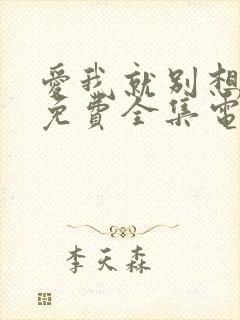 愛我就別想
免費全集電
李天森